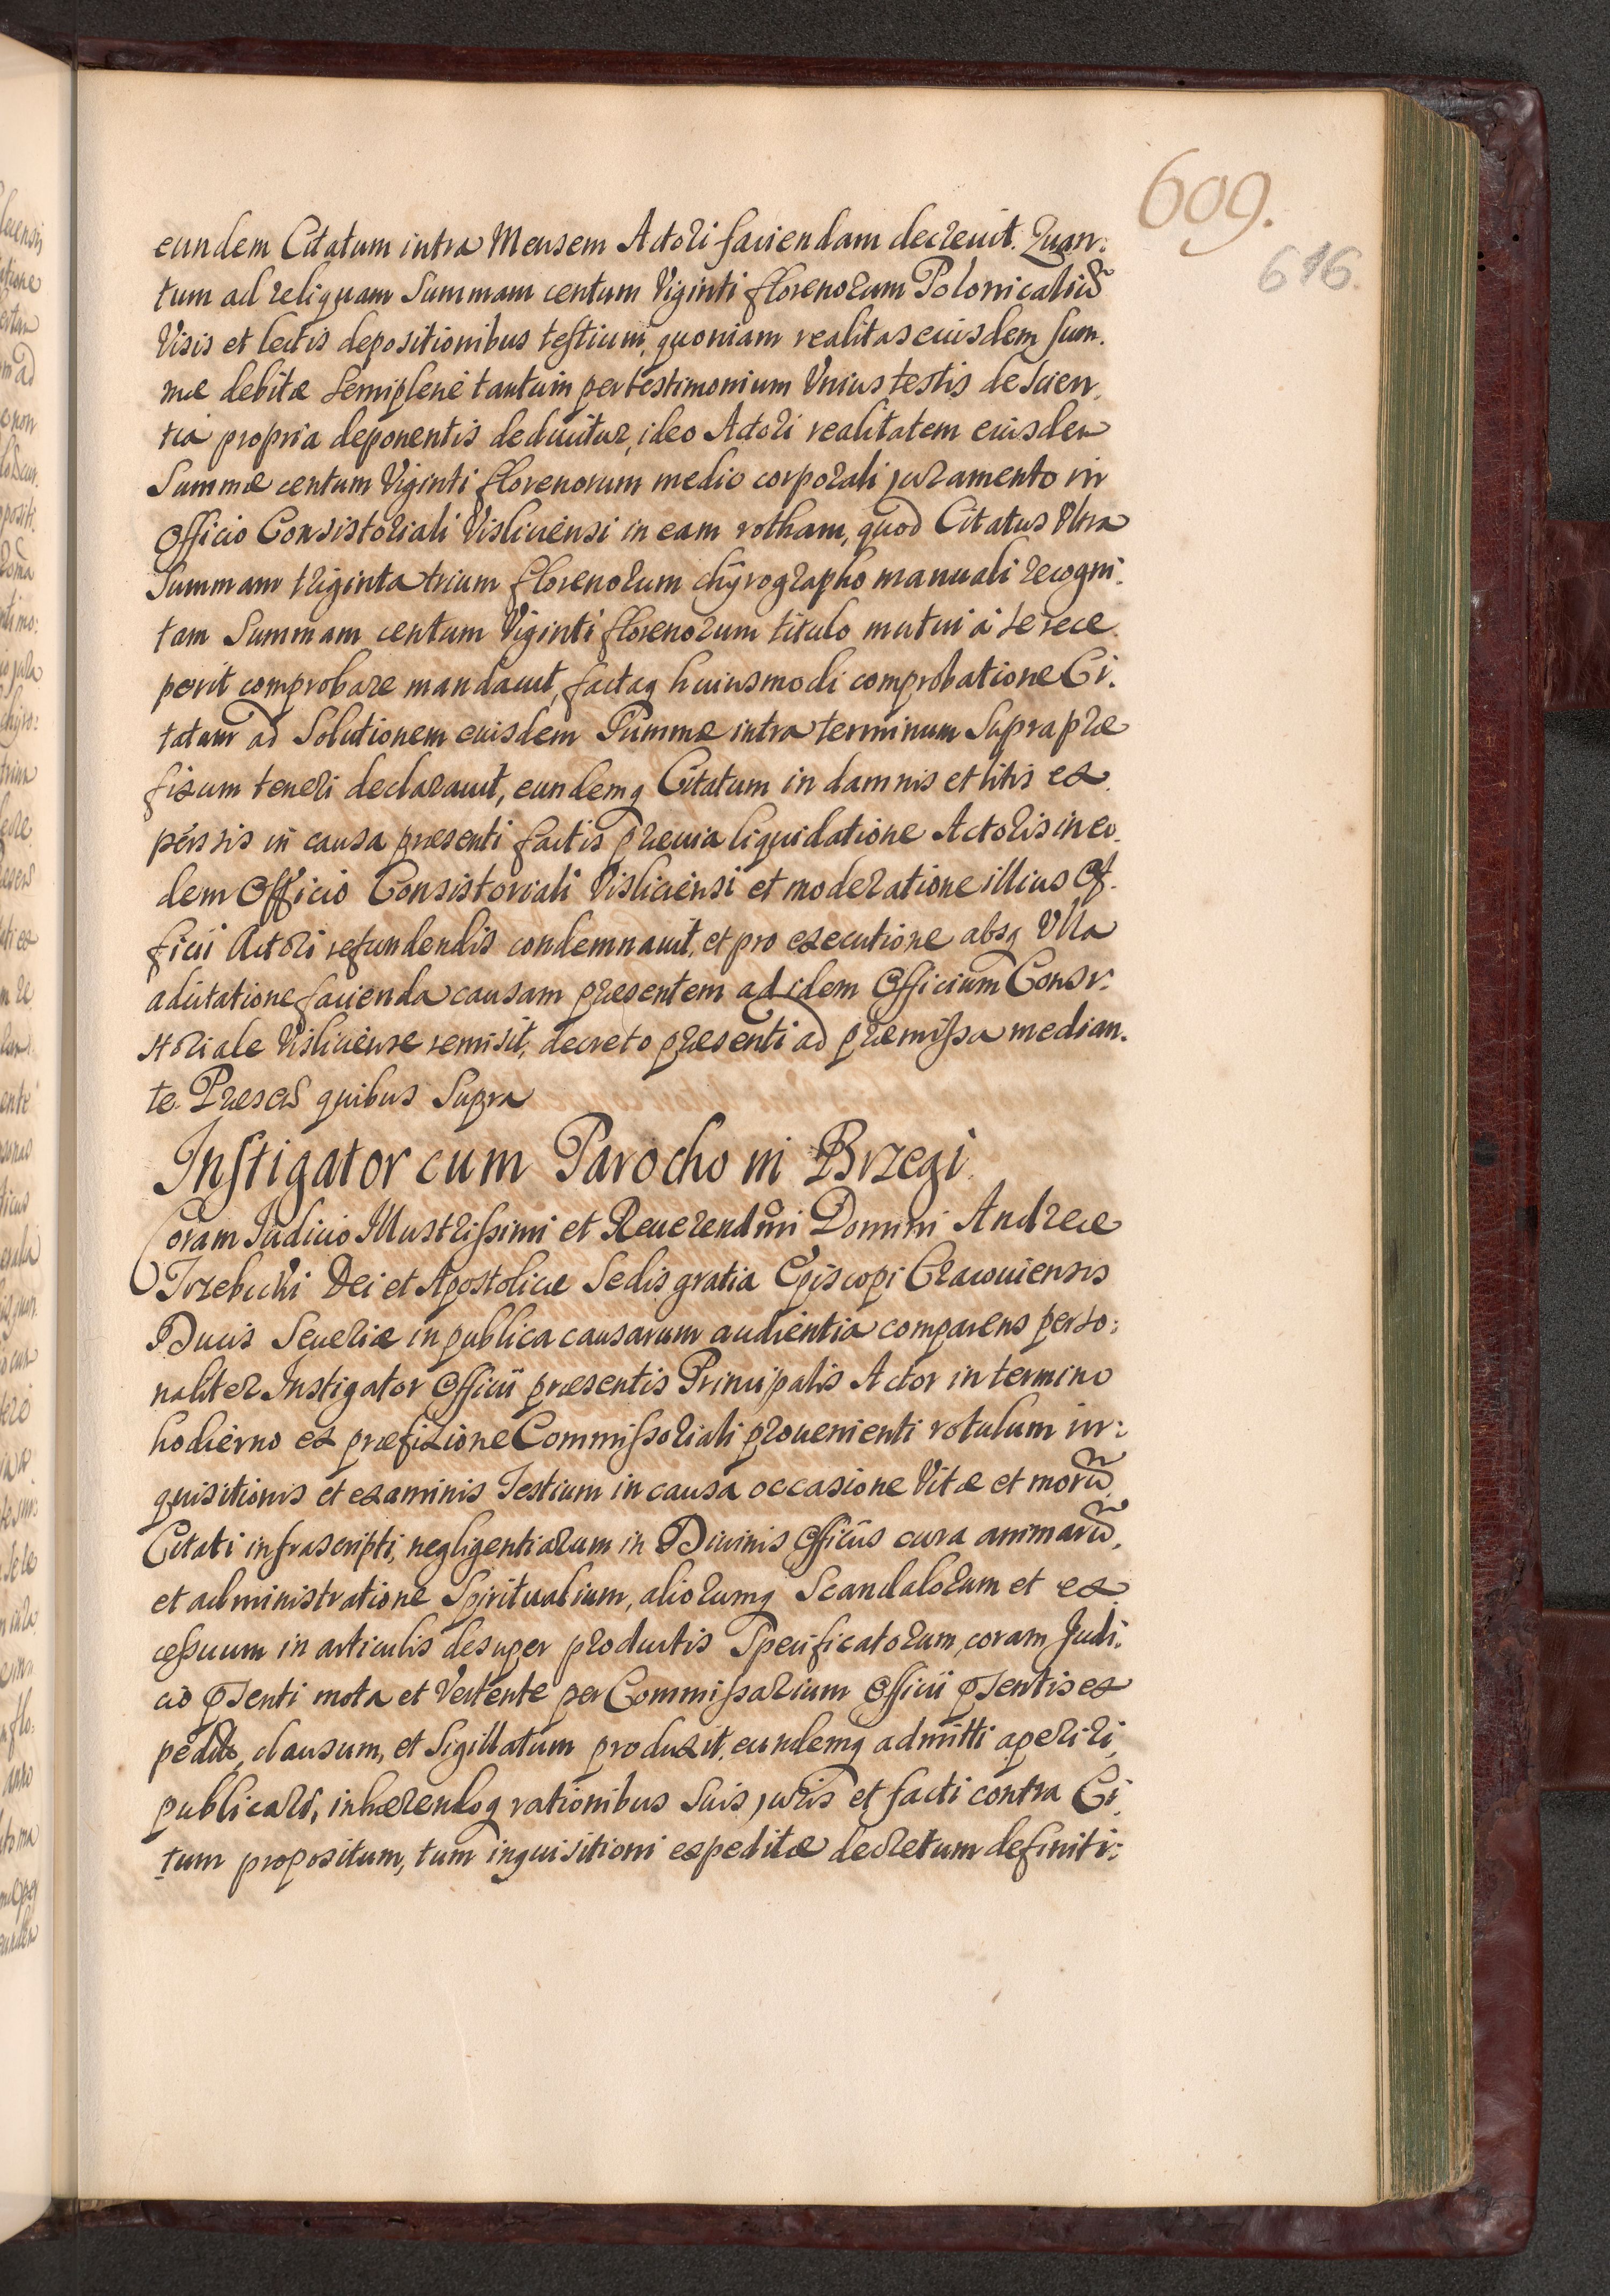 609.
616.
eundem Citatum intra Mensem Actori faciendam decreuit. Quan:
tum ad reliquam Summam centum Viginti florenorum Polonicaliũ
Visis et lectis depositionibus testium, quoniam realitas eiusdem sum.
mæ debitæ semiplene tantum per testimonium Unius testis de scien.
tia propria deponentis deducitur, ideo Actori realitatem eiusdem
Summæ centum Viginti florenorum medio corporali juramento in
Officio Consistoriali Visliciensi in eam rotham, quod Citatus Ultra
Summam triginta trium florenorum chyrographo manuali recogni.
tam Summam centum Viginti florenorum titulo mutui à se rece.
perit comprobare mandauit, factaq huiusmodi comprobatione Ci.
tatum ad Solutionem eiusdem Summæ intra terminum Supra præ
fixum teneri declarauit, eundemq Citatum in damnis et litis ex.
pensis in causa præsenti factis præuia liquidatione Actoris in eo.
dem Officio Consistoriali Visliciensi et moderatione illius Of.
ficii Actori refundendis condemnauit, et pro executione absq Ulla
adcitatione facienda causam præsentem ad idem Officium Consi:
storiale Visliciense remisit, decreto præsenti ad præmissa median.
te. Præsentibus quibus Supra
Instigator cum Parocho in Brzegi.
Coram Judicio Illustrissimi et Reuerendmi Domini Andreæ
Trzebicki Dei et Apostolicæ Sedis gratia Episcopi Cracouiensis
Ducis Seueriæ in publica causarum audientia comparens perso:
naliter Instigator Officii præsentis Principalis Actor in termino
hodierno ex præfixione Commissoriali prouenienti rotulum in:
quisitionis et examinis Testium in causa occasione Vitæ et morũ
Citati infrascripti, negligentiarum in Diuinis Officiis cura animarũ,
et administratione Spiritualium, aliorumq Scandalorum et ex
cessuum in articulis desuper productis Specificatorum, coram Judi.
cio pSenti mota et Vertente per Commissarium Officii pSentis ex
peditũ, clausum, et Sigillatum produxit, eundemq admitti aperiri,
publicari, inhærendoq rationibus Suis juris et facti contra Ci.
tum propositum, tum inquisitioni expeditæ decretum definiti: